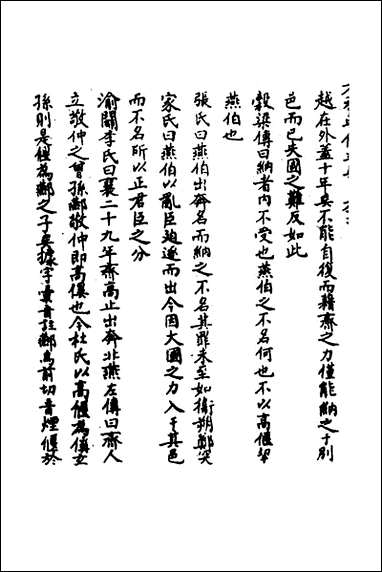 越在外蓋十年矣不能自復而藉齊之力僅能納之于别
邑而已失國之難反如此
穀梁傳曰納者内不受也燕伯之不名何也不以高偃挈
燕伯也
張氏曰燕伯出奔名而納之不名其罪未至如衛朔鄭突
家氏曰燕伯以亂臣迫逐而出今因大國之力入于其邑
而不名所以正君臣之分
渝關李氏曰襄二十九年齊高止出奔北燕左傳曰齊人
立敬仲之曾孫酀敬仲即高傒也今杜氏以高偃為傒玄
孫則是偃為酀之子矣據字彙音註酀為前切音煙偃於